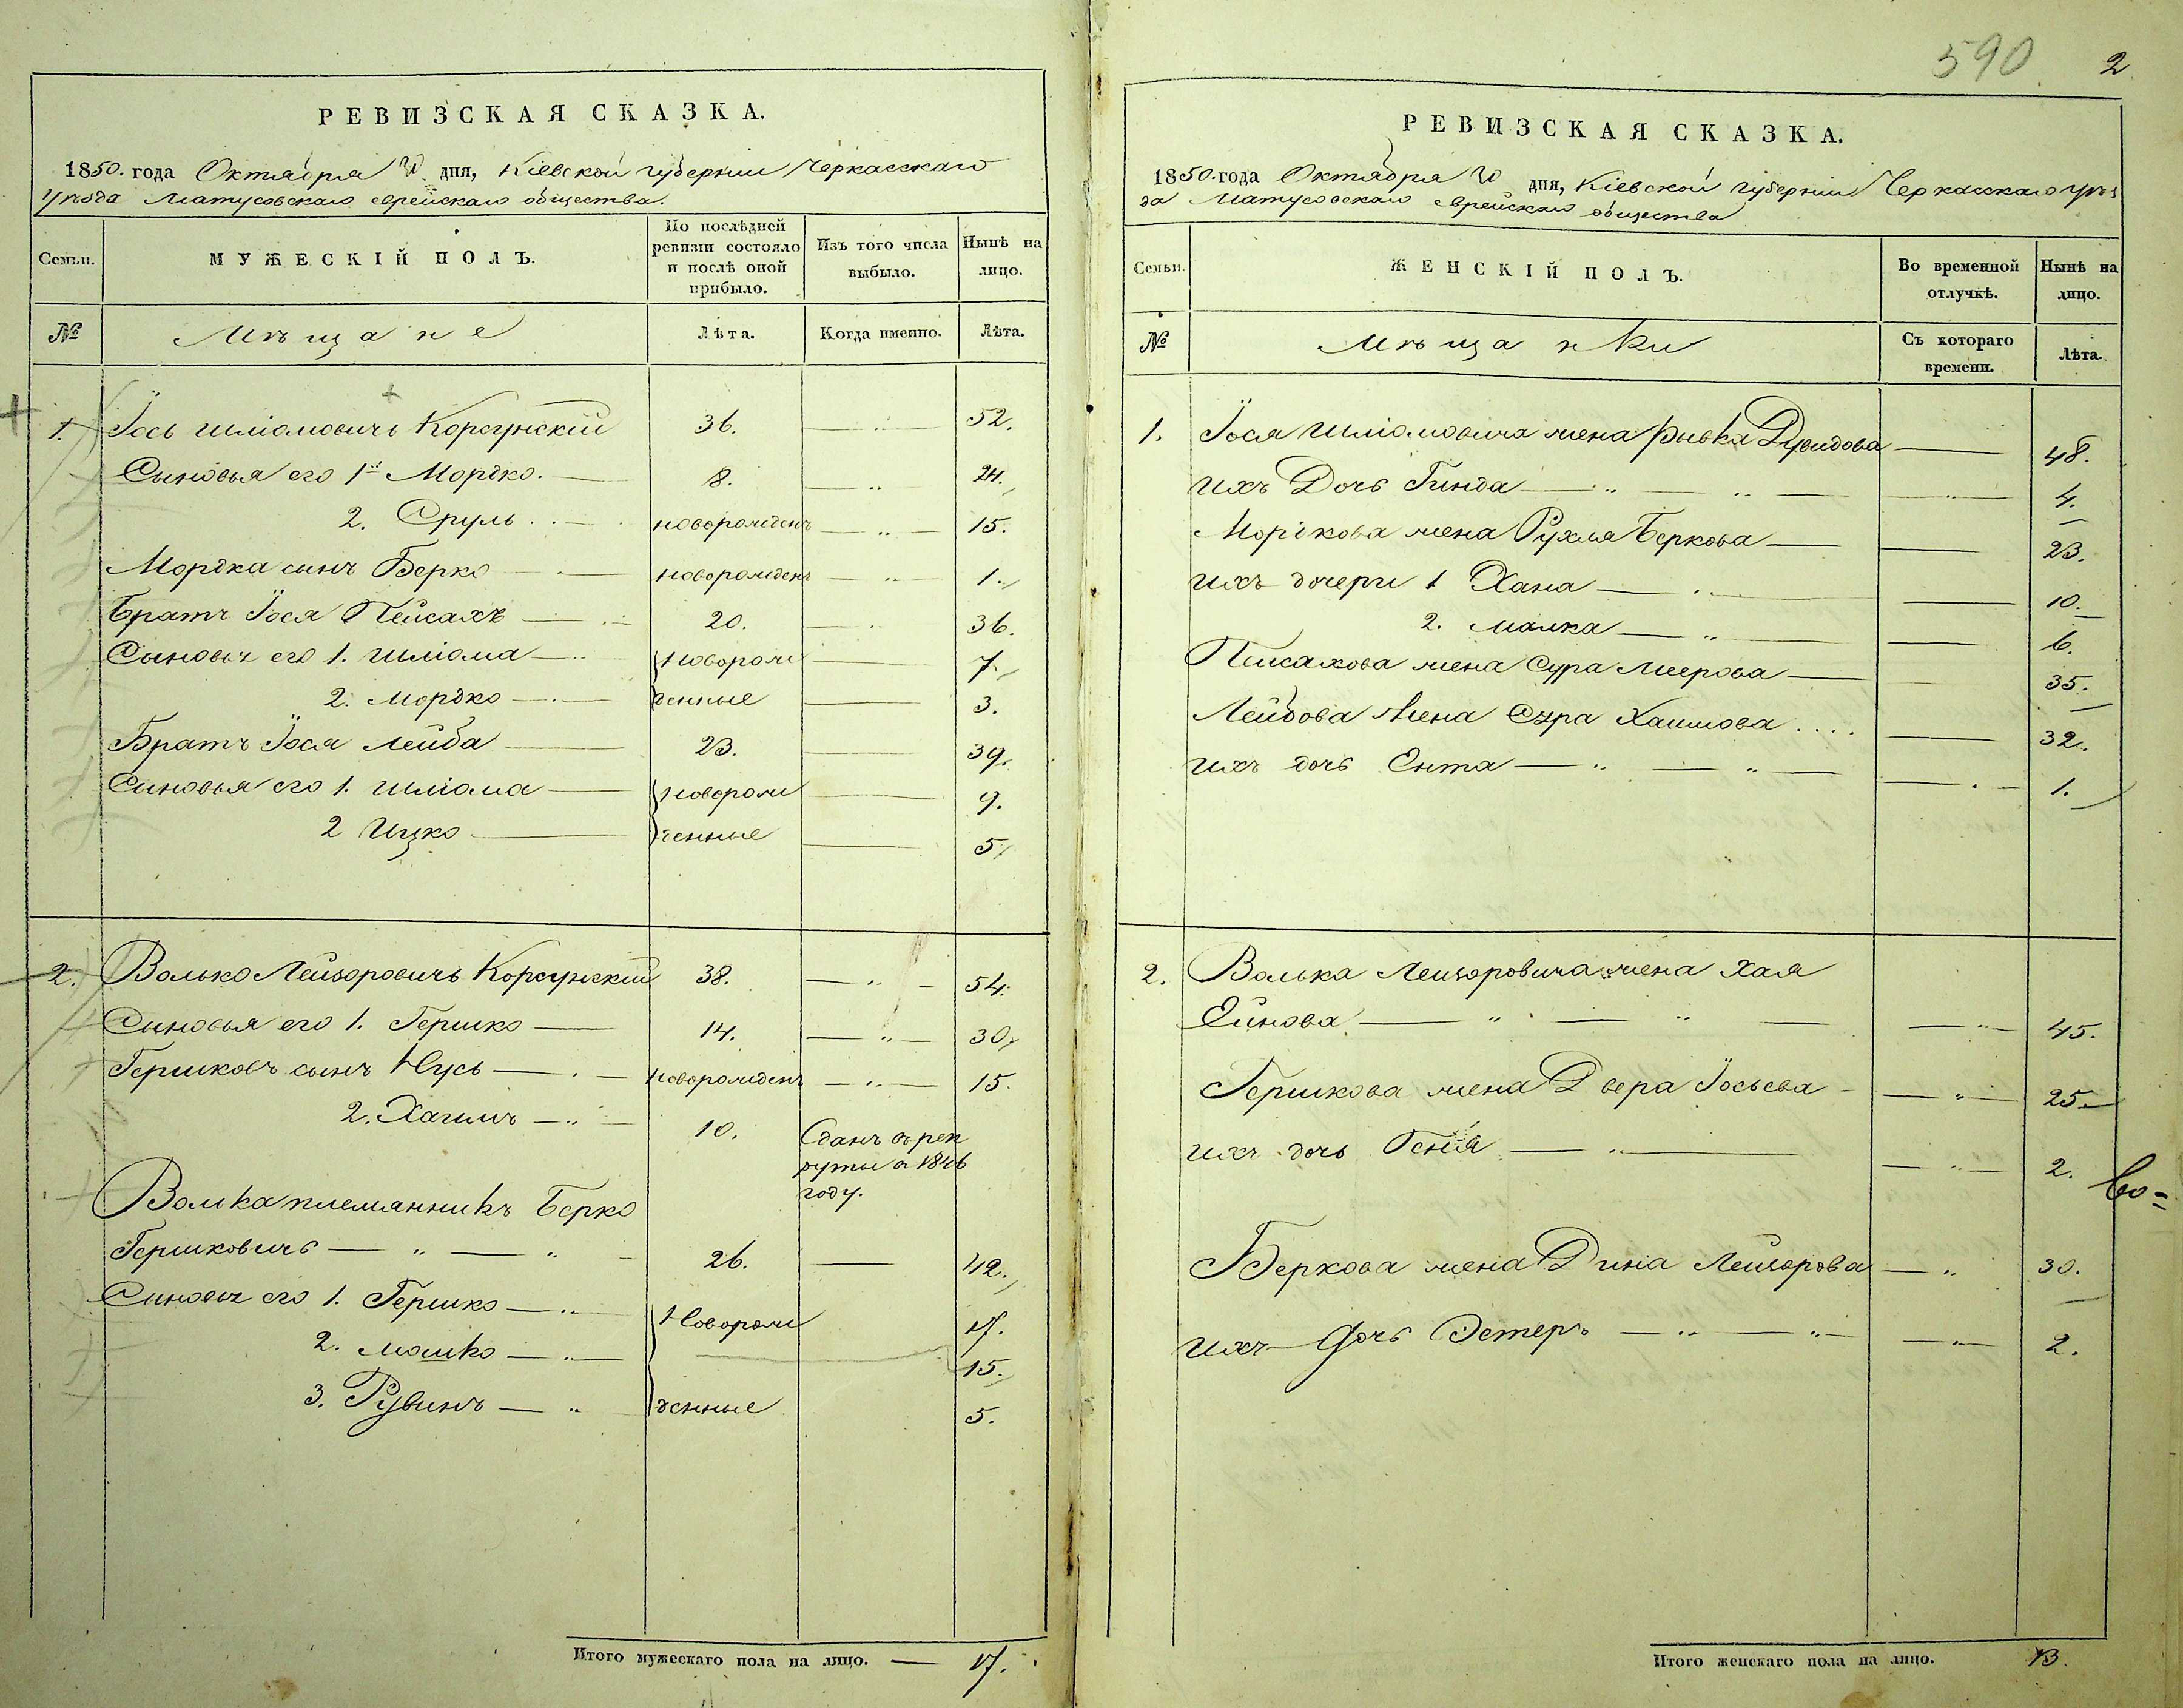 РЕВИЗСКАЯ СКАЗКА.
1850. года Октября дня, Кіевской губерніи Черкасскаго
Уѣзда Матусовскаго еврейскаго общества.
Семьи.
МУЖЕСКІЙ ПОЛЪ.
По послѣдней ревизіи состояло и послѣ оной прибыло.
Изъ того числа выбыло.
Нынѣ на лицо.
№
Мѣщане
Лѣта.
Когда именно.
Лѣта.
1. Іось Шліомовичъ Корсунскій 36. 52.
Сыновья его 1й Мордко. 8. 24.
2. Сруль новорожденъ 15.
Мордка сынъ Берко новорожденъ 1.
Братъ Іося Пейсахъ 20. 36.
Сыновья его 1. Шліома новорож 7.
2. Мордко денные 3.
Братъ Іося Лейба 23. 39.
Сыновья его 1. Шліома новорож 9.
2 Ицко денные 5.
2. Волько Лейзоровичъ Корсунскій 38. 54.
Сыновья его 1. Гершко 14. 30.
Гершковъ сынъ Нусь новорожденъ 15.
2. Хаимъ 10. Сданъ в рек
руты в 1846
году.
Волька племянникъ Берко
Гершковичъ 26. 42.
Сыновья его 1. Гершко новорож 17.
2. Мошко 15.
3. Рувинъ денные 5.
Итого мужескаго пола на лицо. 17.
590 2
РЕВИЗСКАЯ СКАЗКА.
1850. года Октября дня, Кіевской губерніи Черкасскаго уѣз
да Матусовскаго еврейскаго общества
Семьи.
ЖЕНСКІЙ ПОЛЪ.
Во временной отлучкѣ.
Нынѣ на лицо.
№
Мѣщанки
Съ котораго времени.
Лѣта.
1. Іося Шліомовича жена Рывка Дувидова 48.
ихъ Дочь Гинда 4.
Мордкова жена Рухля Беркова 23.
ихъ дочери 1 Хана 10.
2. Малка 6.
Писахова жена Сура Меерова 35.
Лейбова жена Сура Хаимова 32.
ихъ дочь Ента 1.
2. Волька Лейзоровича жена Хая
Ейнова 45.
Гершкова жена Двера Іосьева 25.
ихъ дочь Геня 2.
Во=
Беркова жена Дина Лейзорова 30.
ихъ дочь Эстеръ 2.
Итого женскаго пола на лицо. 13.